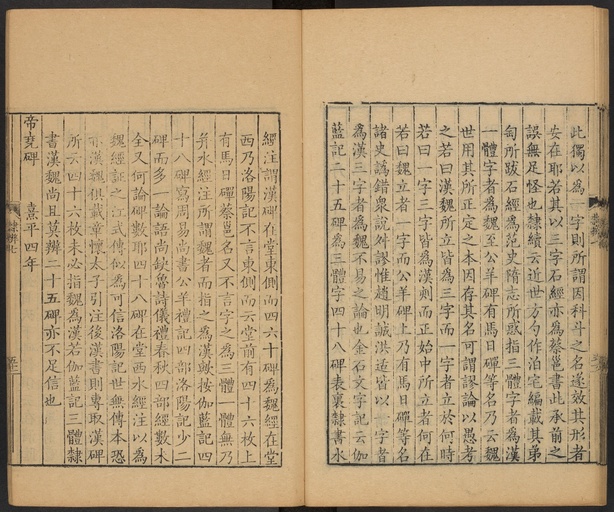 此獨以爲一字則所謂因科斗之名遂效其形者
安在耶若其以三字石經亦爲蔡邕書此承前之
誤無足怪也隸續云近世方勺作泊宅編載其弟
匋所跋石經爲范史隋志所惑指三體字者爲漢
一體字者爲魏至公羊碑有馬日磾等名乃云魏
世用其所正定之本因存其名可謂謬論以愚考
之若曰漢魏所立皆爲三字而一字者立於何時
若曰一字三字皆爲漢刻而正始中所立者何在
若曰魏立者一字而公羊碑上乃有馬日磾等名
諸史譌錯衆說舛謬惟趙明誠洪适皆以一字者
爲漢三字者爲魏不易之論也金石文字記云伽
藍記二十五碑爲三體字四十八碑表裏隸書水
經注謂漢碑在堂東側而四六十碑爲魏經在堂
西乃洛陽記不言東側而云堂前有四十六枚上
有馬日磾蔡邕名又不言字之爲三體一體無乃
并水經注所謂魏者而指之爲漢歟按伽藍記四
十八碑寫周易尚書公羊禮記四部洛陽記少二
碑而多一論語尚缺魯詩儀禮春秋四部經數未
全又何論碑數耶四十八碑在堂西水經注以爲
魏經証之江式傳似爲可信洛陽記世無傳本恐
亦漢魏俱載章懷太子引注後漢書則專取漢碑
所云四十六枚未必指魏爲漢若伽藍記三體隸
書漢魏尚且莫辨二十五碑亦不足信也
帝堯碑 熹平四年
隸辨七